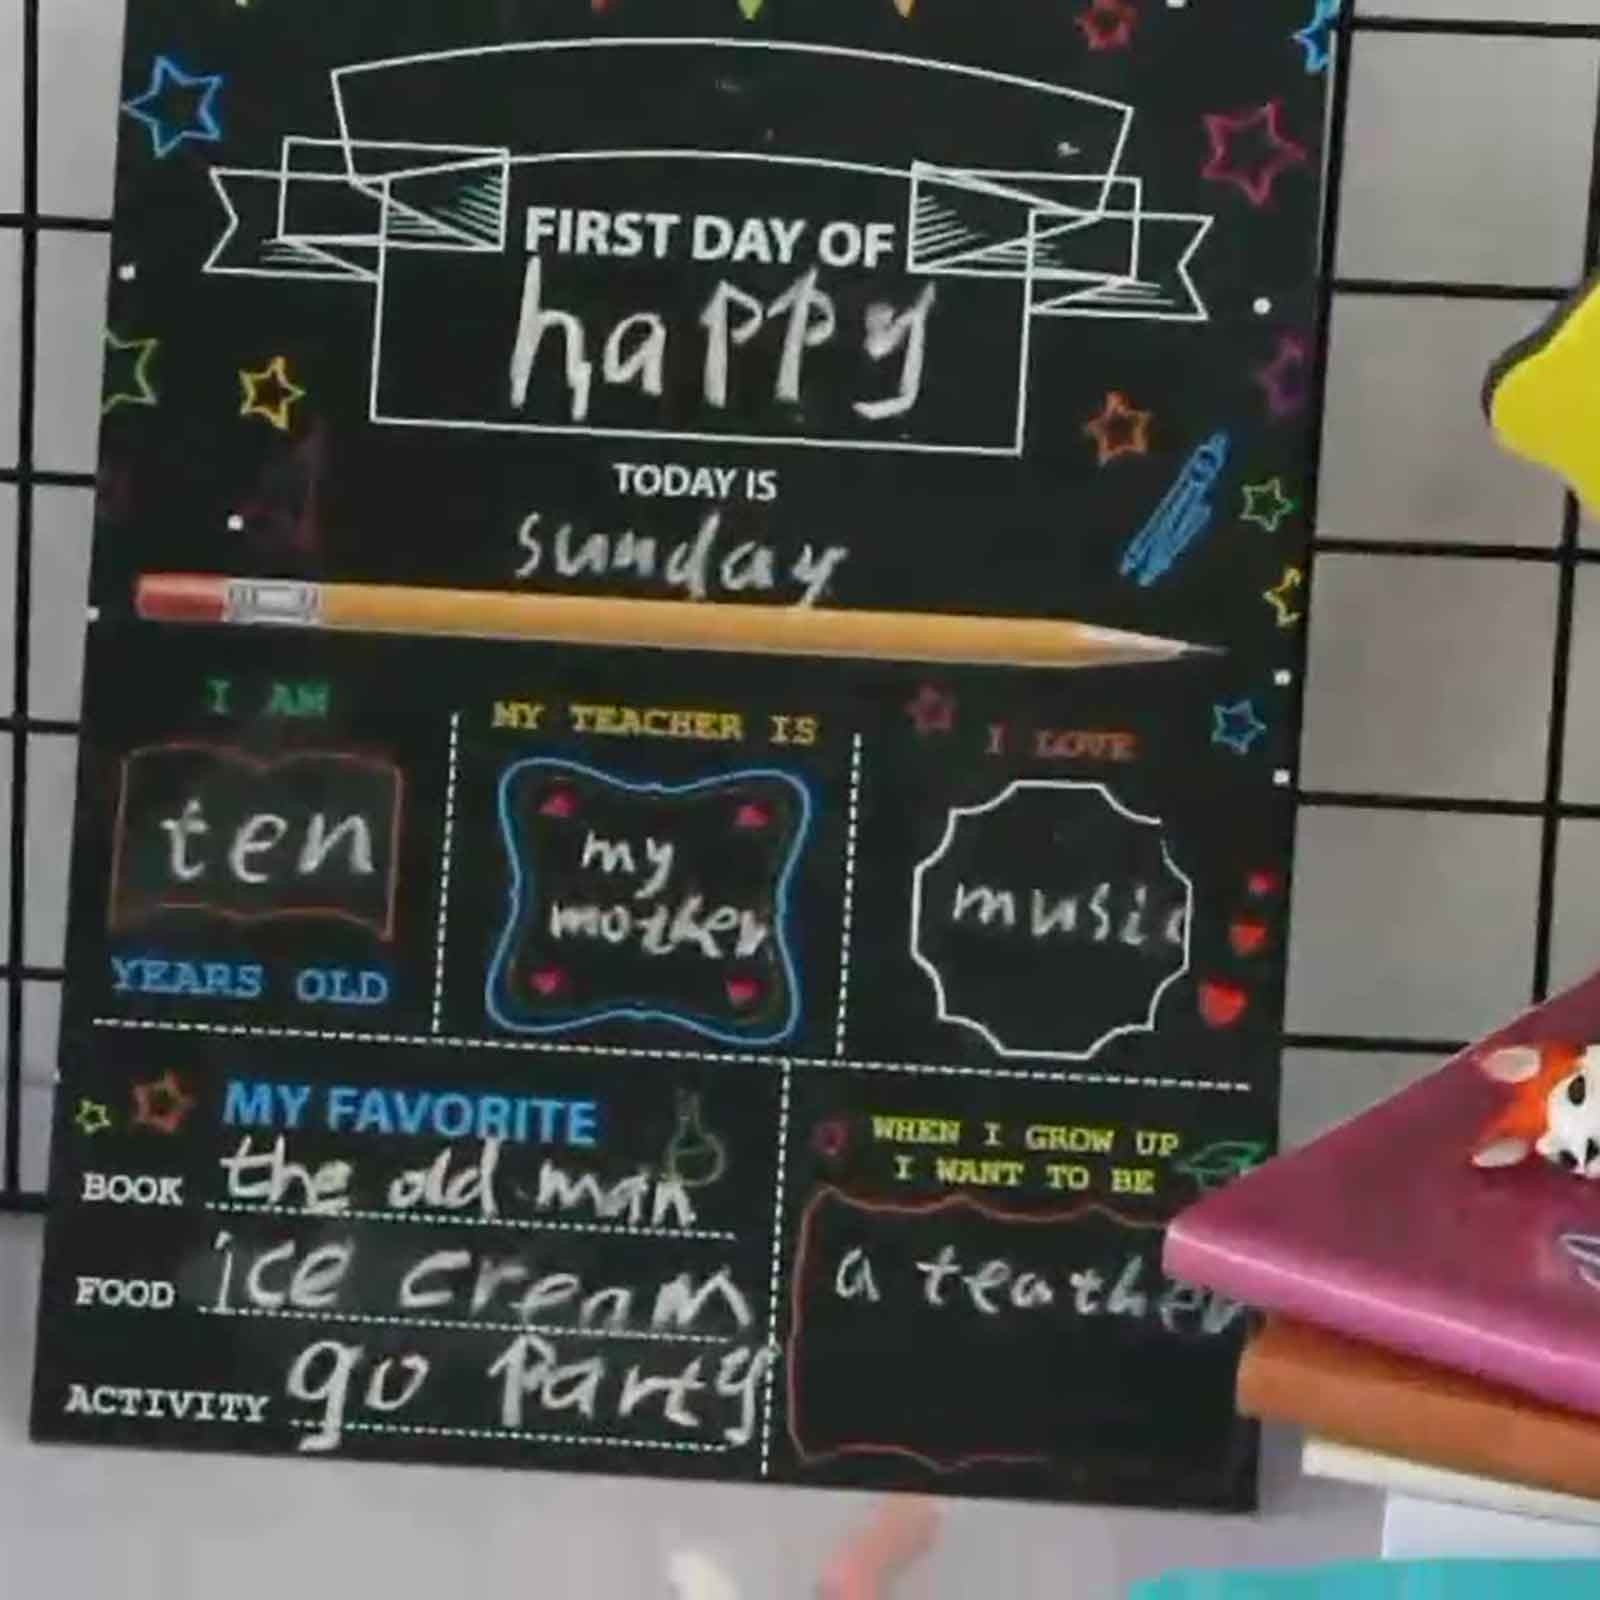 FIRST DAY OF
happy
TODAY IS
sunday
I AM
ten
YEARS OLD
MY TEACHER IS
my
mother
I LOVE
music
MY FAVORITE
BOOK the old man
FOOD ice cream
ACTIVITY go Party
WHEN I GROW UP
I WANT TO BE
a teather